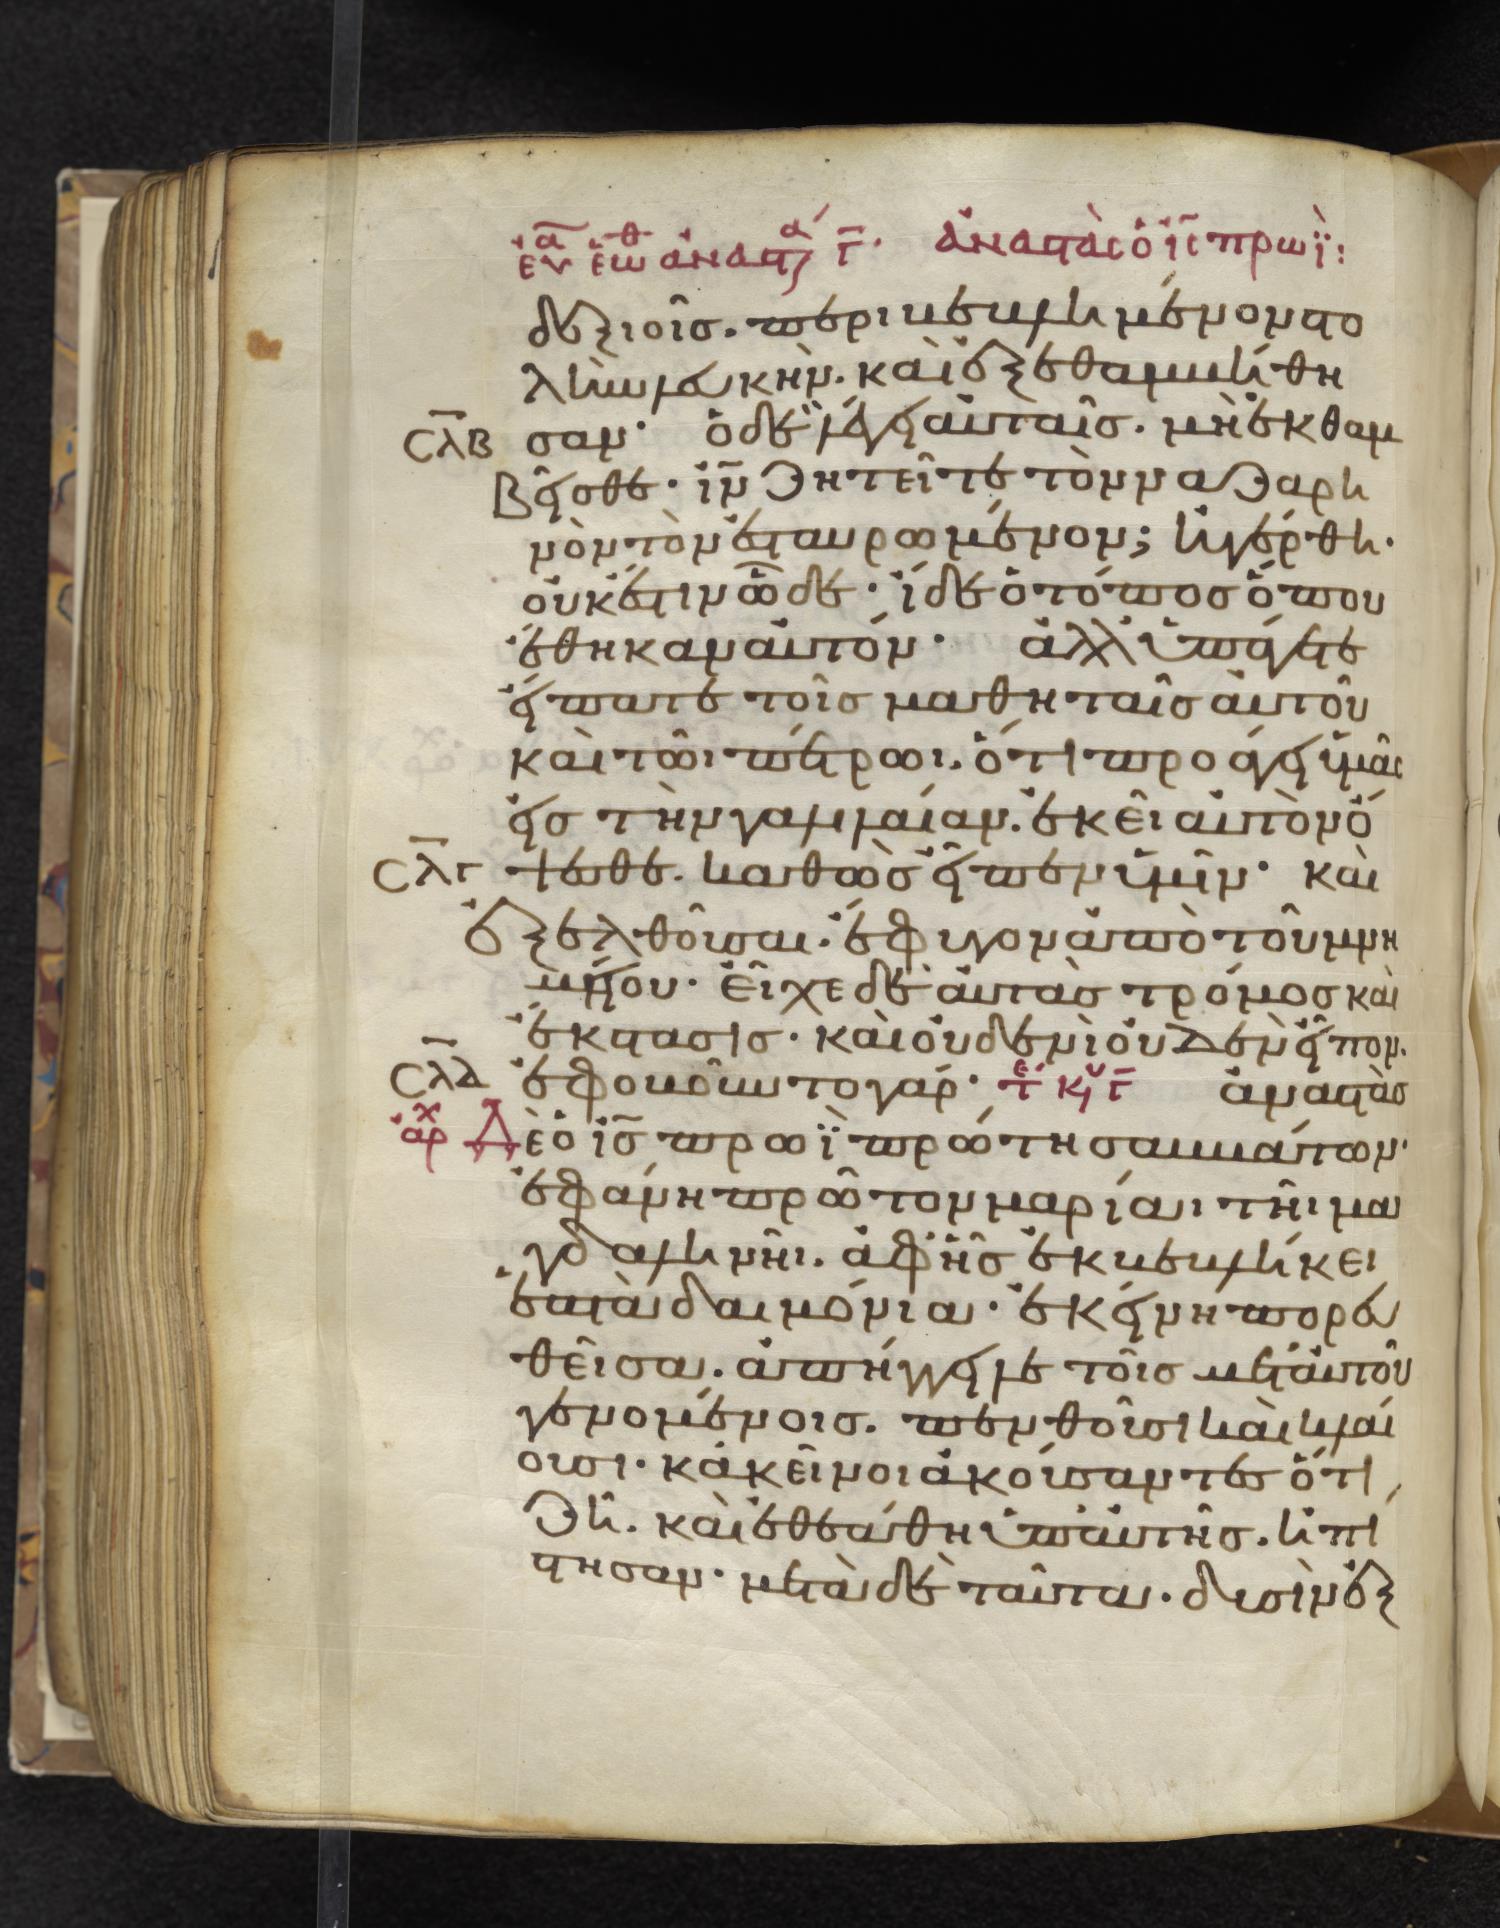 εὐα ἑωθ ἀναστα γ. ἀναστὰς ὁ ις πρωῒ:
δεξιοῖσ. περιβεβλημένον στο
λὴν λευκὴν. καὶ ἐξεθαμβήθη
σλβ σαν· ὁ δὲ λέγει αὐταῖσ. μὴ ἐκθαμ
βεῖσθε· ιν ζητεῖτε τὸν ναζαρη
νὸν τὸν ἐσταυρωμένον; ἠγέρθη·
οὐκ ἔστιν ὧδε· ἴδε ὁ τόποσ ὅπου
ἔθηκαν αὐτόν· ἀλλ' ὑπάγετε
εἴπατε τοῖσ μαθηταῖσ αὐτοῦ
καὶ τῶι πέτρωι. ὅτι προάγει ὑμᾶς
εἰσ τὴν γαλιλαίαν. ἐκεῖ αὐτὸν ὄ
σλγ ψεσθε. καθὼσ εἶπεν ὑμῖν· καὶ
ἐξελθοῦσαι. ἔφυγον ἀπὸ τοῦ μνη
μείου· εἶχε δὲ αὐτὰσ τρόμοσ καὶ
ἔκστασισ· καὶ οὐδενὶ οὐδὲν εἶπον.
σλδ ἐφοβοῦντο γάρ· τε κυ γ ἀναστὰσ
αρχ Δὲ ὁ ισ πρωῒ πρώτη σαββάτων·
ἐφάνη πρῶτον μαρίαι τῆι μα
γδαληνῆι. ἀφ' ἧσ ἐκβεβλήκει
ἑπτὰ δαιμόνια· ἐκείνη πορευ
θεῖσα. ἀπήγγειλε τοῖσ μετ' αὐτοῦ
γενομένοισ. πενθοῦσι καὶ κλαί
ουσι· κἀκεῖνοι ἀκούσαντεσ ὅτι
ζῆ. καὶ ἐθεάθη ὑπ' αὐτῆσ. ἠπί
στησαν· μετὰ δὲ ταῦτα. δυσὶν ἐξ